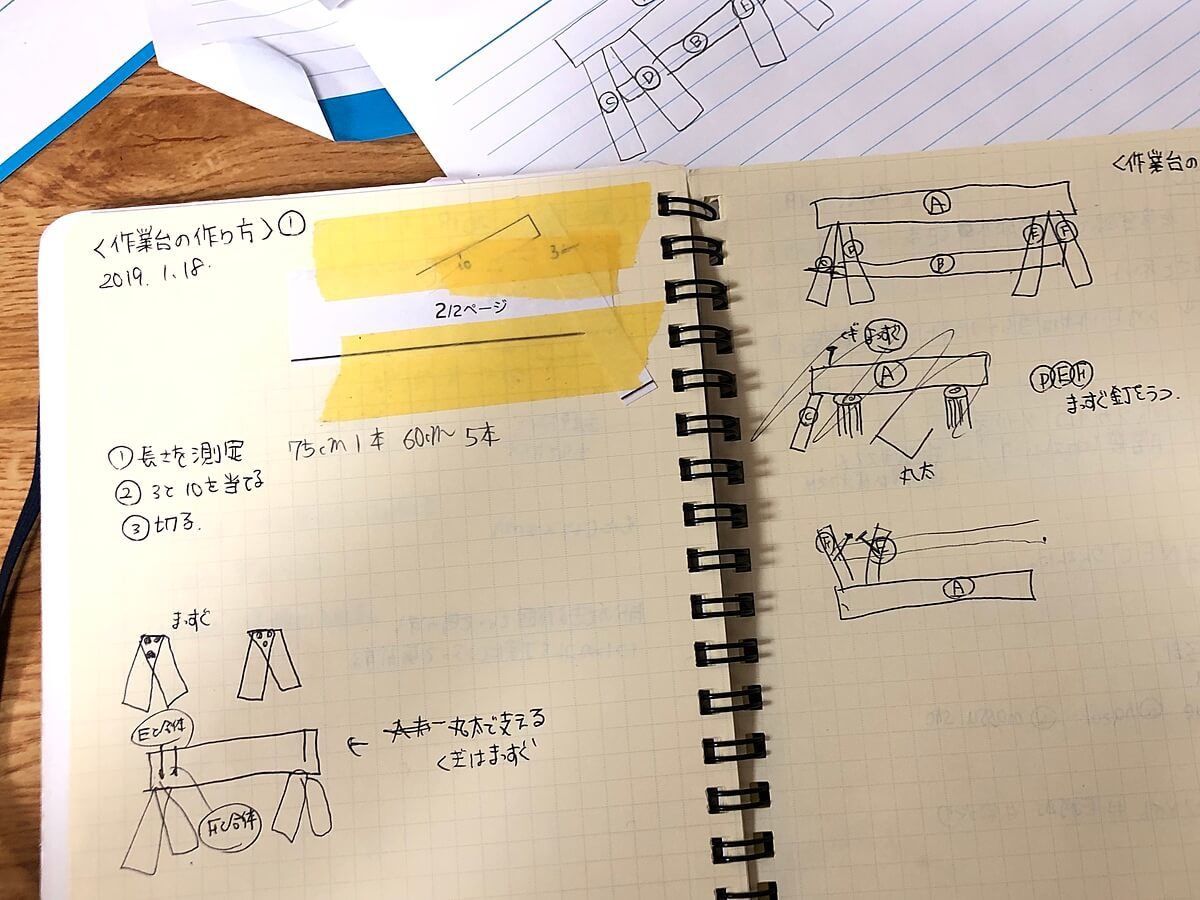 〈作業台の作り方〉①
2019. 1.18.
10
3
2/2ページ
①長さを測定 75cm 1本 60cm 5本
②3と10を当てる
③切る.
まっすぐ
Eと合体
← 丸太で支える
くぎはまっすぐ
Fと合体
B
D
C
〈作業台の
A
C
D
E
F
B
くぎ まっすぐ
A
C
D E F
まっすぐ釘をうつ.
丸太
F
E
A